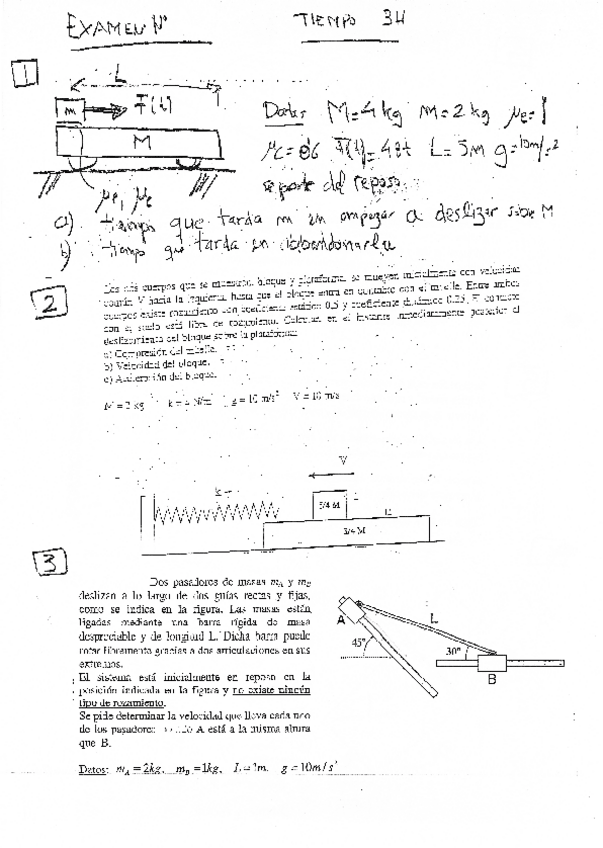 EXAMEN Nº
TIEMPO 3H
1
L
m F(t)
M
μe, μc
Datos M=4kg m=2kg μe=1
μc=0'6 F(t)=4·t L=5m g=10m/s²
se parte del reposo.
a) tiempo que tarda m en empezar a deslizar sobre M
b) tiempo que tarda en abandonarla
2
Los dos cuerpos que se muestran, bloque y plataforma, se mueven inicialmente con velocidad
común V hacia la izquierda, hasta que el bloque entra en contacto con el muelle. Entre ambos
cuerpos existe rozamiento con coeficiente estático 0,5 y coeficiente dinámico 0,25. El contacto
con el suelo está libre de rozamiento. Calcular, en el instante inmediatamente posterior al
deslizamiento del bloque sobre la plataforma:
a) Compresión del muelle.
b) Velocidad del bloque.
c) Aceleración del bloque.
M = 2 kg k = 4 N/m g = 10 m/s² V = 10 m/s
V
k
M
3/4 M
3
Dos pasadores de masas mA y mB
deslizan a lo largo de dos guías rectas y fijas,
como se indica en la figura. Las masas están
ligadas mediante una barra rígida de masa
despreciable y de longitud L. Dicha barra puede
rotar libremente gracias a dos articulaciones en sus
extremos.
El sistema está inicialmente en reposo en la
posición indicada en la figura y no existe ningún
tipo de rozamiento.
Se pide determinar la velocidad que lleva cada uno
de los pasadores cuando A está a la misma altura
que B.
A
L
45°
30°
B
Datos: mA = 2kg, mB = 1kg, L = 1m, g = 10m/s²